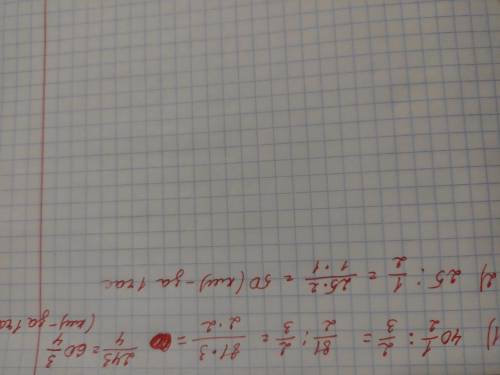 1) 40 1/2 : 2/3 = 81/2 : 2/3 = 81·3/2·2 = 243/4 = 60 3/4
(км) - за 1 час
2) 25 : 1/2 = 25·2/1·1 = 50 (км) - за 1 час